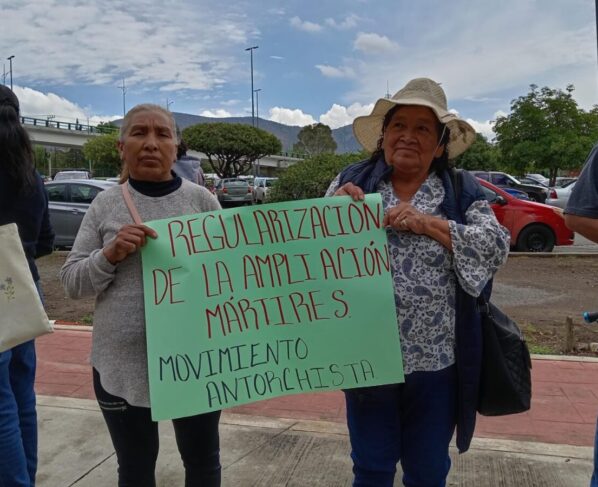 REGULARIZACIÓN
DE LA AMPLIACIÓN
MÁRTIRES.
MOVIMIENTO
ANTORCHISTA